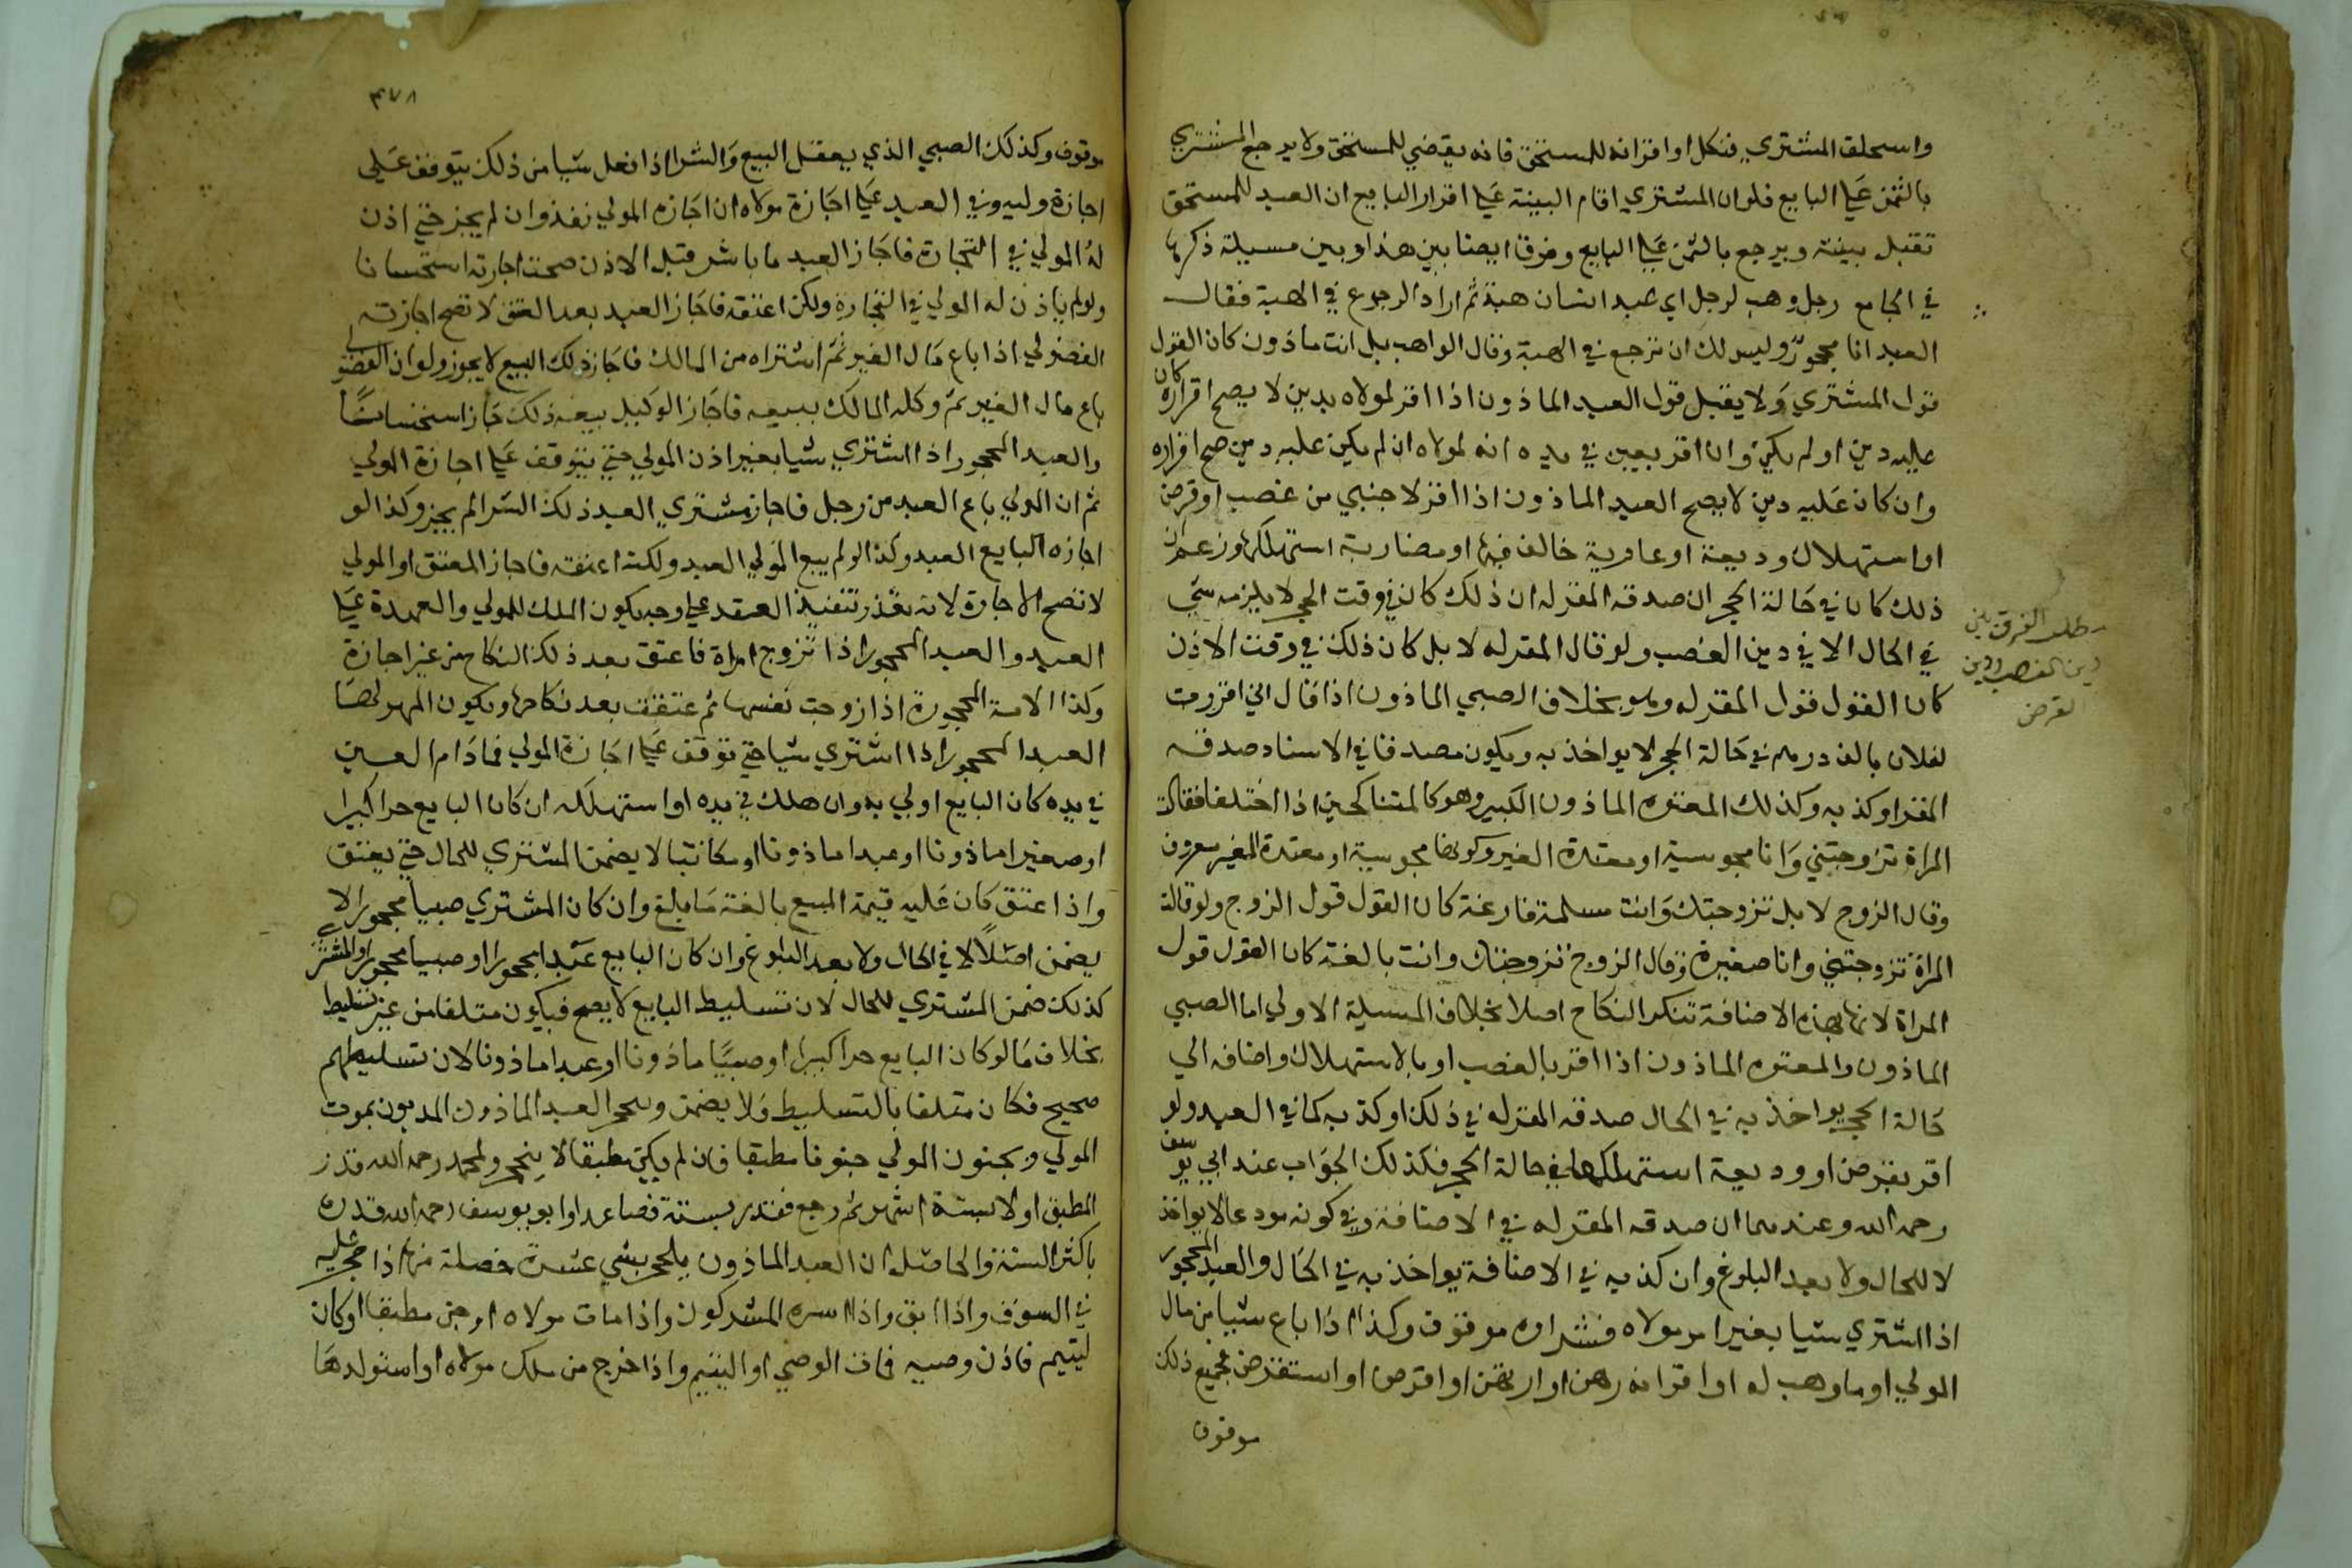 واستحلف المشتري فنكل او اقرانه للمستحق فانه يقضي للمستحق ولا يرجع المشتري
بالثمن على البايع فلو ان المشتري اقام البينة على اقرار البايع ان العبد للمستحق
تقبل بينته ويرجع بالثمن على البايع وفرقا ايضا بين هذا وبين مسيلة ذكرها
في الجامع رجل وهب لرجل اي عبد انسان هبة ثم اراد الرجوع في الهبة فقال
العبد انا محجور وليس لك ان ترجع في الهبة وقال الواهب بل انت ماذون كان القول
قول المشتري ولا يقبل قول العبد الماذون اذا اقر لمولاه بدين لا يصح اقراره كان
عليه دين او لم يكن وان اقر بعين في يده انه لمولاه ان لم يكن عليه دين صح اقراره
وان كان عليه دين لا يصح العبد الماذون اذا اقر لاجنبي من غصب او قرض
او استهلاك وديعة او عارية خالف فيها او مضاربة استهلكها وزعم ان
ذلك كان في حالة الحجر ان صدقه المقر له ان ذلك كان في وقت الحجر لا يلزمه شي
في الحال الا في دين الغصب ولو قال المقر له لا بل كان ذلك في وقت الاذن
كان القول قول المقر له وهو بخلاف الصبي الماذون اذا قال اني اقررت
لفلان بالف درهم في حالة الحجر لا يواخذ به ويكون مصدقا في الاسناد صدقه
المقر او كذبه وكذلك المعتوه الماذون الكبير وهو كالمتناكحين اذا اختلفا فقالت
المراة تزوجتني وانا مجوسية او معتدة الغير وكونها مجوسية او معتدة الغير معروف
وقال الزوج لا بل تزوجتك وانت مسلمة فارغة كان القول قول الزوج ولو قالت
المراة تزوجتني وانا صغيرة وقال الزوج تزوجتك وانت بالغة كان القول قول
المراة لانها بهذه الاضافة تنكر النكاح اصلا بخلاف المسيلة الاولي اما الصبي
الماذون والمعتوه الماذون اذا اقر بالغصب او بالاستهلاك واضافه الي
حالة الحجر يواخذ به في الحال صدقه المقر له في ذلك او كذبه كما في العبد ولو
اقر بقرض او وديعة استهلكها في حالة الحجر فكذلك الجواب عند ابي يوسف
رحمه الله وعندهما ان صدقه المقر له في الاضافة وفي كونه مودعا لا يواخذ
لا للحال ولا بعد البلوغ وان كذبه في الاضافة يواخذ به في الحال والعبد المحجور
اذا اشتري شيا بغير امر مولاه فشراوه موقوف وكذا اذا باع شيا من مال
المولي او ما وهب له او اقر انه رهن او ارتهن او اقرض او استقرض فجميع ذلك
موقوف
مطلب الفرق بين
دين الغصب ودين
القرض
٤٧٨
موقوف وكذلك الصبي الذي يعقل البيع والشرا اذا فعل شيا من ذلك يتوقف على
اجازة وليه وفي العبد على اجازة مولاه ان اجازه المولي نفذ وان لم يجز حتي اذن
له المولي في التجارة فاجاز العبد ما باشر قبل الاذن صحت اجازته استحسانا
ولو لم ياذن له المولي في التجارة ولكن اعتقه فاجاز العبد بعد العتق لا تصح اجازته
الفضولي اذا باع مال الغير ثم اشتراه من المالك فاجاز ذلك البيع لا يجوز ولو ان الفضولي
باع مال الغير ثم وكله المالك ببيعه فاجاز الوكيل بيعه ذلك جاز استحسانا
والعبد المحجور اذا اشتري شيا بغير اذن المولي حتي يتوقف على اجازة المولي
ثم ان المولي باع العبد من رجل فاجاز مشتري العبد ذلك الشرا لم يجز وكذا لو
اجازه البايع العبد وكذا لو لم يبع المولي العبد ولكنه اعتقه فاجاز المعتق او المولي
لا تصح الاجازة لانه تعذر تنفيذ العقد على وجه يكون الملك للمولي والعهدة على
العبد والعبد المحجور اذا تزوج امراة فاعتق بعد ذلك النكاح من غير اجازة
وكذا الامة المحجورة اذا زوجت نفسها ثم عتقت بعد نكاحها ويكون المهر لها
العبد المحجور اذا اشتري شيا حتي توقف على اجازة المولي فما دام العين
في يده كان البايع اولي به وان هلك في يده او استهلكه ان كان البايع حرا كبيرا
او صغيرا ماذونا او عبدا ماذونا او مكاتبا لا يضمن المشتري للحال حتي يعتق
واذا عتق كان عليه قيمة المبيع بالغة ما بلغ وان كان المشتري صبيا محجورا لا
يضمن اصلا لا في الحال ولا بعد البلوغ وان كان البايع عبدا محجورا او صبيا محجورا والمشتري
كذلك ضمن المشتري للحال لان تسليط البايع لا يصح فيكون متلفا من غير تسليط
بخلاف ما لو كان البايع حرا كبيرا او صبيا ماذونا او عبدا ماذونا لان تسليطهم
صحيح فكان متلفا بالتسليط ولا يضمن وينحجر العبد الماذون المديون بموت
المولي وبجنون المولي جنونا مطبقا فان لم يكن مطبقا لا ينحجر ومحمد رحمه الله قدر
المطبق اولا بستة اشهر ثم رجع فقدر بسنة فصاعدا وابو يوسف رحمه الله قدره
باكثر السنة والحاصل ان العبد الماذون ينحجر باثني عشرة خصلة منها اذا حجر عليه
في السوق واذا ابق واذا اسره المشركون واذا مات مولاه او جن مطبقا او كان
ليتيم فاذن وصيه فمات الوصي او اليتيم واذا خرج من ملك مولاه او استولدها